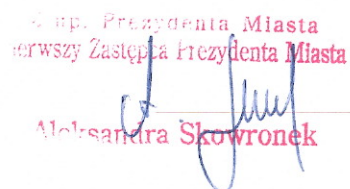 up. Prezydenta Miasta
erwszy Zastępca Prezydenta Miasta
Aleksandra Skowronek